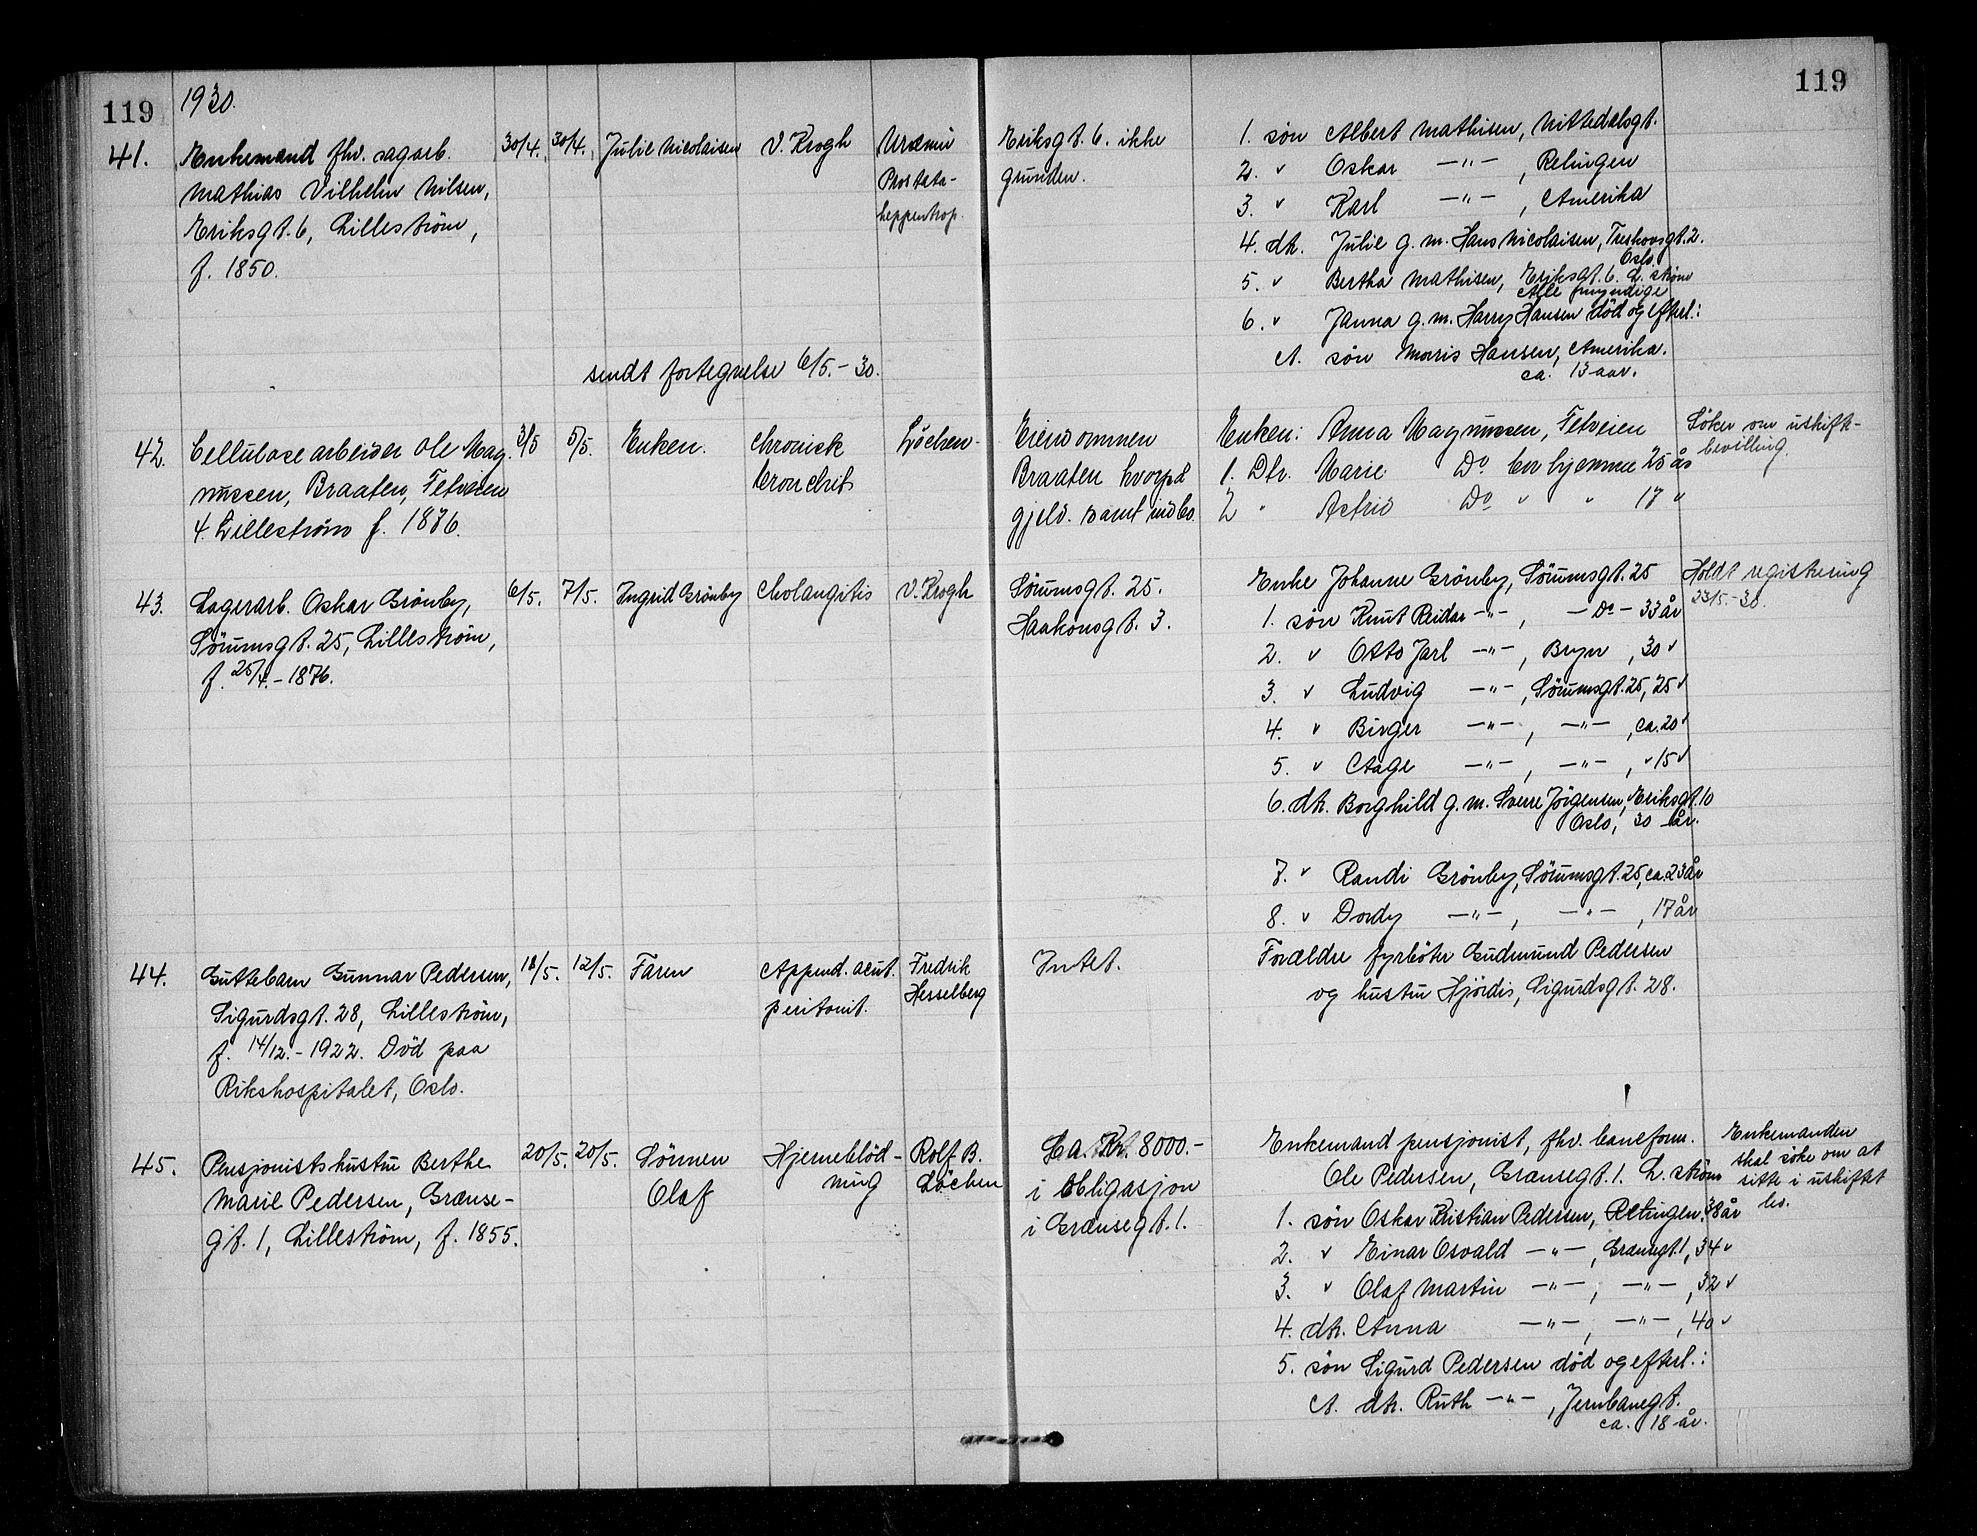 119
1930.
119
41.
Enkemand fhv. sagarb.
Mathias Vilhelm Nilsen,
Eriksgt. 6, Lillestrøm,
f. 1850.
30/4. 30/4. Julie Nicolaisen V. Krogh
Uræmi
Prostata-
Eriksgt. 6. ikke
grunden.
1. søn Albert Mathisen, Nittedalsgt.
2. " Oskar —"— , Relingen
3. " Karl —"— , Amerika
4. dtr. Julie g. m. Hans Nicolaisen, Treskowsgt. 2.
Oslo
5. " Bertha Mathisen, Eriksgt. 6. L. strøm
Alle myndige
6. " Janna g. m. Harry Hansen død og efterl.:
A. søn Morris Hansen, Amerika.
ca. 13 aar.
sendt fortegnelse 6/5. - 30.
42.
Cellulosearbeider Ole Mag-
nussen, Braaten, Fetveien
4. Lillestrøm f. 1876.
3/5 5/5. Enken.
Chronisk
bronchit
Løchen
Eiendommen
Braaten hvorpå
gjeld. samt indbo.
Enken: Anna Magnussen, Fetveien
1. Dtr. Marie Do bor hjemme 25 år
2 " Astrid Do " " 17 "
Søker om uskifte-
bevilling.
43.
Lagerarb. Oskar Grønby,
Sørumsgt. 25, Lillestrøm,
f. 25/4. - 1876.
6/5. 7/5. Ingrid Grønby Cholangitis V. Krogh
Sørumsgt. 25.
Haakonsgt. 3.
Enke Johanne Grønby, Sørumsgt. 25
1. søn Knut Reidar —"— , — Do — 33 år
2. " Otto Jarl —"— , Bryn , 30 "
3. " Ludvig —"— , Sørumsgt. 25, 25 "
4. " Birger —"— , —"— , ca. 20 "
5. " Aage —"— , —"— , " 15 "
6. dtr. Borghild g. m. Sverre Jørgensen, Eriksgt. 10
Oslo, 30 år.
7. " Randi Grønby, Sørumsgt. 25, ca. 23 år
8. " Dordy —"— , —"— , 17 år
Holdt registrering
23/5. - 30.
44.
Guttebarn Gunnar Pedersen,
Sigurdsgt. 28, Lillestrøm,
f. 14/12. - 1922. Død paa
Rikshospitalet, Oslo.
12/5. Faren
Append. acut.
peritonit.
Fredrik
Hesselberg
Intet.
Forældre fyrbøter Gudmund Pedersen
og hustru Hjørdis, Sigurdsgt. 28.
45.
Pensjonistshustru Berthe
Marie Pedersen, Grænse-
gt. 1, Lillestrøm, f. 1855.
20/5. 20/5. Sønnen
Olaf
Hjerneblød-
ning
Rolf B.
Løchen
Ca. Kr. 8000.-
i Obligasjon
i Grænsegt. 1.
Enkemand pensjonist, fhv. baneform.
Ole Pedersen, Grænsegt. 1. L. strøm
1. søn Oskar Kristian Pedersen, Relingen. 38 år
2. " Einar Osvald —"— , Grænsegt. 1, 34 "
3. " Olaf Martin —"— , —"— , 32 "
4. dtr. Anna —"— , —"— , 40 "
5. søn Sigurd Pedersen død og efterl.:
A. dtr. Ruth —"— , Jernbanegt.
ca. 18 år.
Enkemanden
skal søke om at
sitte i uskiftet
bo.